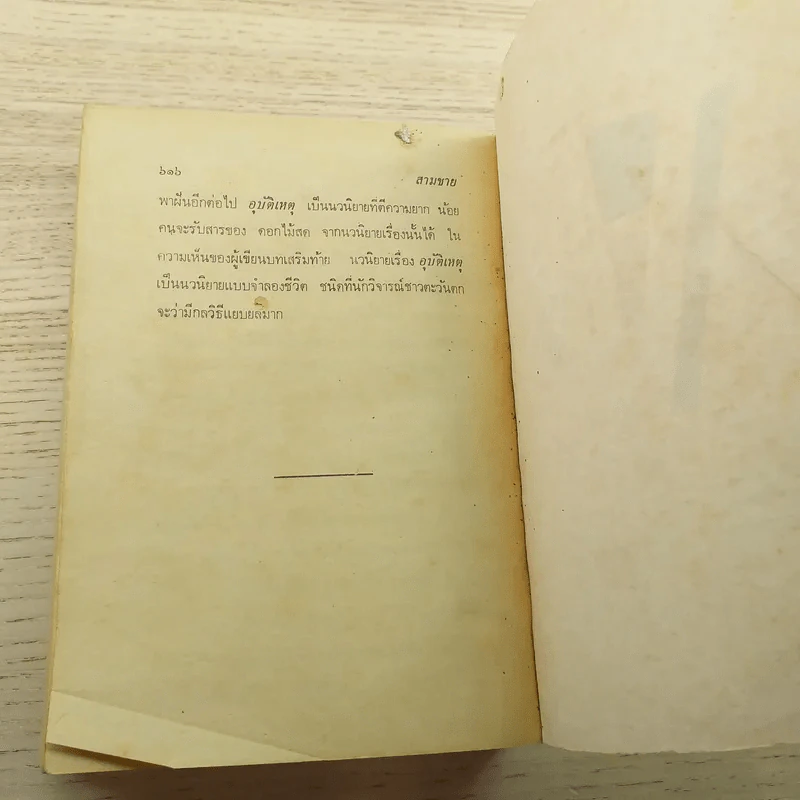 ๖๑๖
สามชาย
พาฝันอีกต่อไป อุบัติเหตุ เป็นนวนิยายที่ตีความยาก น้อย
คนจะรับสารของ ดอกไม้สด จากนวนิยายเรื่องนั้นได้ ใน
ความเห็นของผู้เขียนบทเสริมท้าย นวนิยายเรื่อง อุบัติเหตุ
เป็นนวนิยายแบบจำลองชีวิต ชนิดที่นักวิจารณ์ชาวตะวันตก
จะว่ามีกลวิธีแยบยลมาก